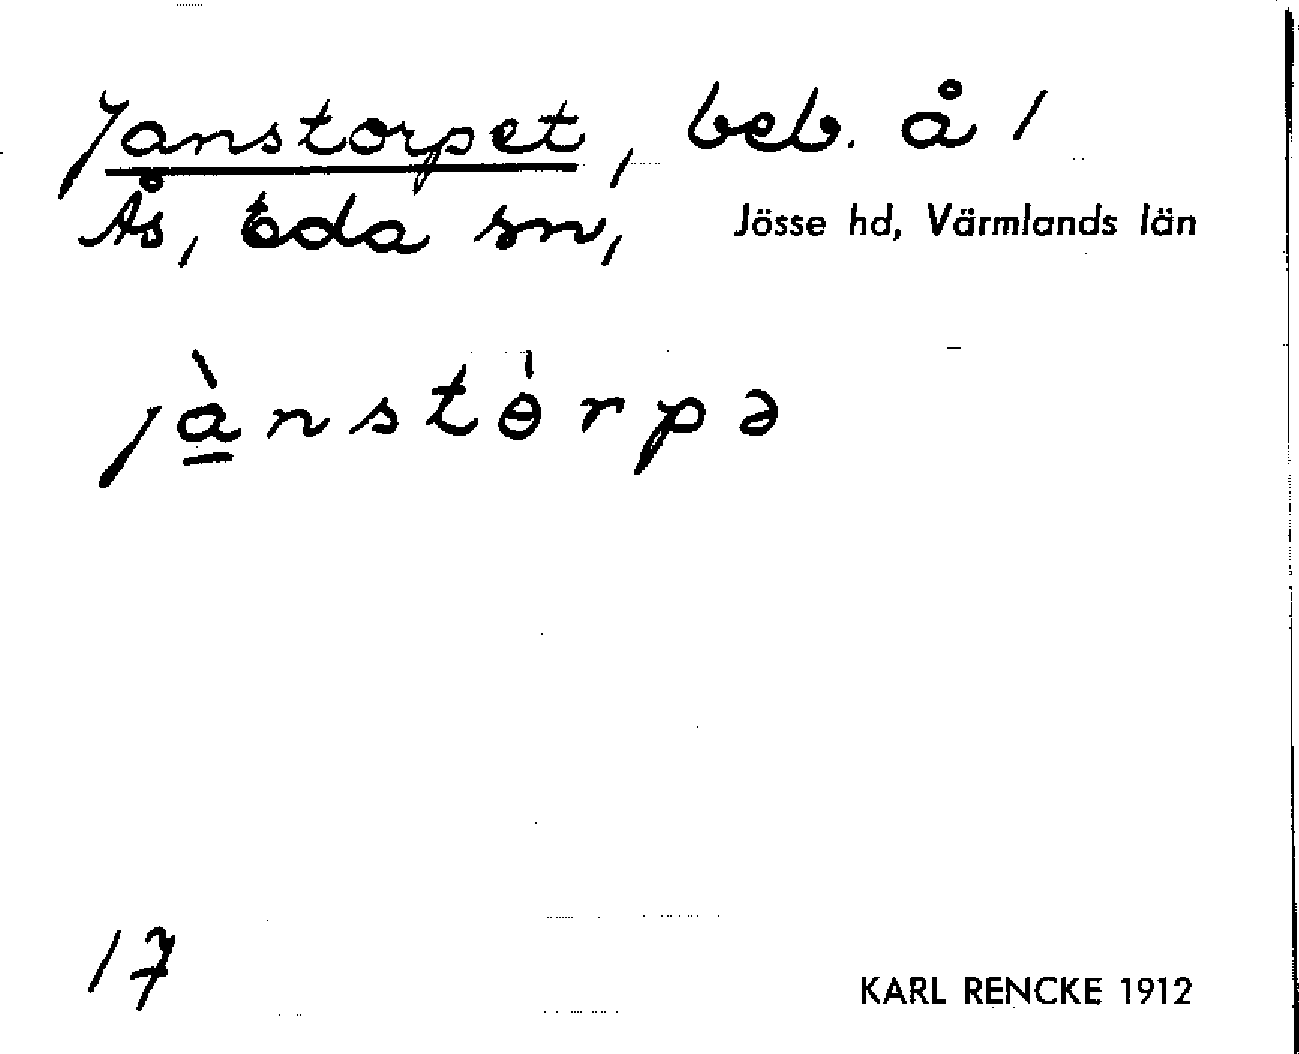 Janstorpet, beb. å 1
Ås, Eda sn, Jösse hd, Värmlands län
jà̱nstɵ̀rpə
17
KARL RENCKE 1912